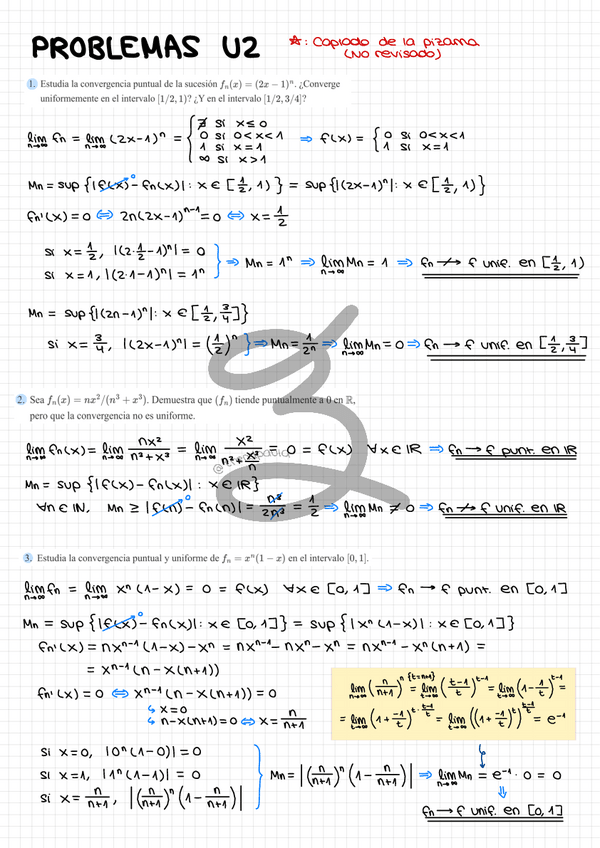 PROBLEMAS U2
☆: Copiado de la pizarra
(No revisado)
1. Estudia la convergencia puntual de la sucesión fₙ(x) = (2x − 1)ⁿ. ¿Converge
uniformemente en el intervalo [1/2, 1)? ¿Y en el intervalo [1/2, 3/4]?
lim n→∞ fn = lim n→∞ (2x-1)ⁿ = { ∄ si x ≤ 0
0 si 0<x<1
1 si x=1
∞ si x>1
⇒ f(x) = { 0 si 0<x<1
1 si x=1
Mn = sup{|f(x) - fn(x)| : x ∈ [1/2, 1)} = sup{|(2x-1)ⁿ| : x ∈ [1/2, 1)}
fn'(x) = 0 ⇔ 2n(2x-1)ⁿ⁻¹ = 0 ⇔ x = 1/2
si x = 1/2, |(2·1/2 - 1)ⁿ| = 0
si x = 1, |(2·1-1)ⁿ| = 1ⁿ
⇒ Mn = 1ⁿ ⇒ lim n→∞ Mn = 1 ⇒ fn ↛ f unif. en [1/2, 1)
Mn = sup{|(2n-1)ⁿ| : x ∈ [1/2, 3/4]}
si x = 3/4, |(2x-1)ⁿ| = (1/2)ⁿ } ⇒ Mn = 1/2ⁿ ⇒ lim n→∞ Mn = 0 ⇒ fn → f unif. en [1/2, 3/4]
2. Sea fₙ(x) = nx²/(n³ + x³). Demuestra que (fₙ) tiende puntualmente a 0 en ℝ,
pero que la convergencia no es uniforme.
lim n→∞ fn(x) = lim n→∞ nx²/(n³+x³) = lim n→∞ x²/(n²+x³/n) = 0 = f(x) ∀x ∈ ℝ ⇒ fn → f punt. en ℝ
Mn = sup{|f(x) - fn(x)| : x ∈ ℝ}
∀n ∈ ℕ, Mn ≥ |f(n) - fn(n)| = n³/2n³ = 1/2 ⇒ lim n→∞ Mn ≠ 0 ⇒ fn ↛ f unif. en ℝ
3. Estudia la convergencia puntual y uniforme de fₙ = xⁿ(1 − x) en el intervalo [0, 1].
lim n→∞ fn = lim n→∞ xⁿ(1-x) = 0 = f(x) ∀x ∈ [0,1] ⇒ fn → f punt. en [0,1]
Mn = sup{|f(x) - fn(x)| : x ∈ [0,1]} = sup{|xⁿ(1-x)| : x ∈ [0,1]}
fn'(x) = nxⁿ⁻¹(1-x) - xⁿ = nxⁿ⁻¹ - nxⁿ - xⁿ = nxⁿ⁻¹ - xⁿ(n+1) =
= xⁿ⁻¹(n - x(n+1))
fn'(x) = 0 ⇔ xⁿ⁻¹(n - x(n+1)) = 0
↳ x = 0
↳ n - x(n+1) = 0 ⇔ x = n/(n+1)
lim n→∞ (n/(n+1))ⁿ {t=n+1} = lim t→∞ ((t-1)/t)ᵗ⁻¹ = lim t→∞ (1 - 1/t)ᵗ⁻¹ =
= lim t→∞ (1 + -1/t)^(t·(t-1)/t) = lim t→∞ ((1 + -1/t)ᵗ)^((t-1)/t) = e⁻¹
si x=0, |0ⁿ(1-0)| = 0
si x=1, |1ⁿ(1-1)| = 0
si x = n/(n+1), |(n/(n+1))ⁿ (1 - n/(n+1))|
Mn = |(n/(n+1))ⁿ (1 - n/(n+1))| ⇒ lim n→∞ Mn = e⁻¹ · 0 = 0
⇓
fn → f unif. en [0,1]